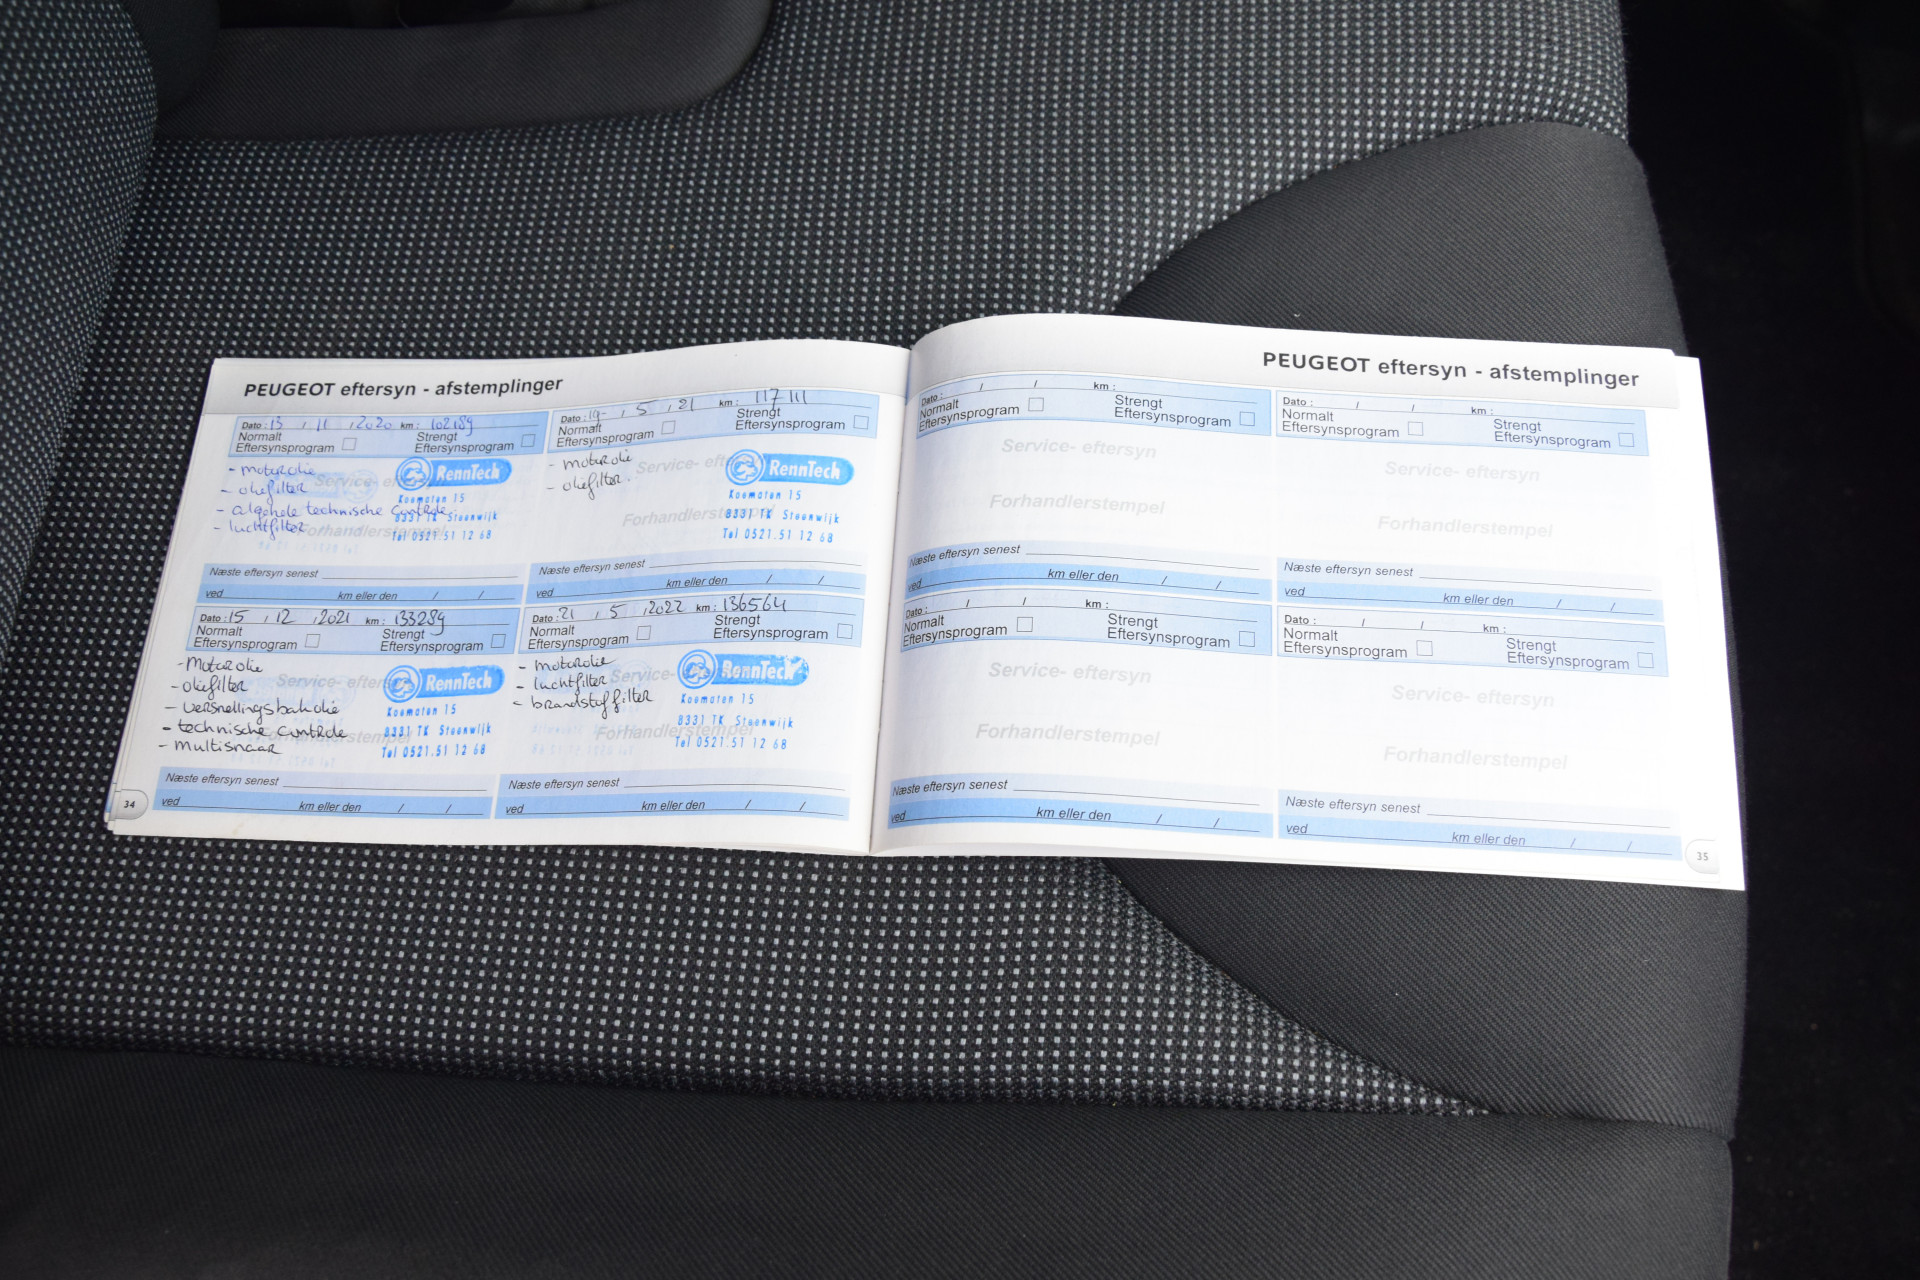 PEUGEOT eftersyn - afstemplinger
Dato : 13 / 11 / 2020 km : 102189
Normalt Eftersynsprogram
Strengt Eftersynsprogram
- motorolie
- oliefilter
- algehele technische controle
- luchtfilter
Service- eftersyn
Forhandlerstempel
RennTech
Koematen 15
8331 TK Steenwijk
Tel 0521.51 12 68
Næste eftersyn senest
ved km eller den / /
Dato : 19 - / 5 / 21 km : 117111
Normalt Eftersynsprogram
Strengt Eftersynsprogram
- motorolie
- oliefilter.
Service- eftersyn
Forhandlerstempel
RennTech
Koematen 15
8331 TK Steenwijk
Tel 0521.51 12 68
Næste eftersyn senest
ved km eller den / /
Dato : 15 / 12 / 2021 km : 133289
Normalt Eftersynsprogram
Strengt Eftersynsprogram
- Motorolie
- oliefilter
- versnellingsbakolie
- technische controle
- Multisnaar
Service- eftersyn
Forhandlerstempel
RennTech
Koematen 15
8331 TK Steenwijk
Tel 0521.51 12 68
Næste eftersyn senest
ved km eller den / /
Dato : 21 / 5 / 2022 km : 136564
Normalt Eftersynsprogram
Strengt Eftersynsprogram
- Motorolie
- luchtfilter
- brandstoffilter
Service- eftersyn
Forhandlerstempel
RennTech
Koematen 15
8331 TK Steenwijk
Tel 0521.51 12 68
Næste eftersyn senest
ved km eller den / /
34
PEUGEOT eftersyn - afstemplinger
Dato : / / km :
Normalt Eftersynsprogram
Strengt Eftersynsprogram
Service- eftersyn
Forhandlerstempel
Næste eftersyn senest
ved km eller den / /
Dato : / / km :
Normalt Eftersynsprogram
Strengt Eftersynsprogram
Service- eftersyn
Forhandlerstempel
Næste eftersyn senest
ved km eller den / /
Dato : / / km :
Normalt Eftersynsprogram
Strengt Eftersynsprogram
Service- eftersyn
Forhandlerstempel
Næste eftersyn senest
ved km eller den / /
Dato : / / km :
Normalt Eftersynsprogram
Strengt Eftersynsprogram
Service- eftersyn
Forhandlerstempel
Næste eftersyn senest
ved km eller den / /
35